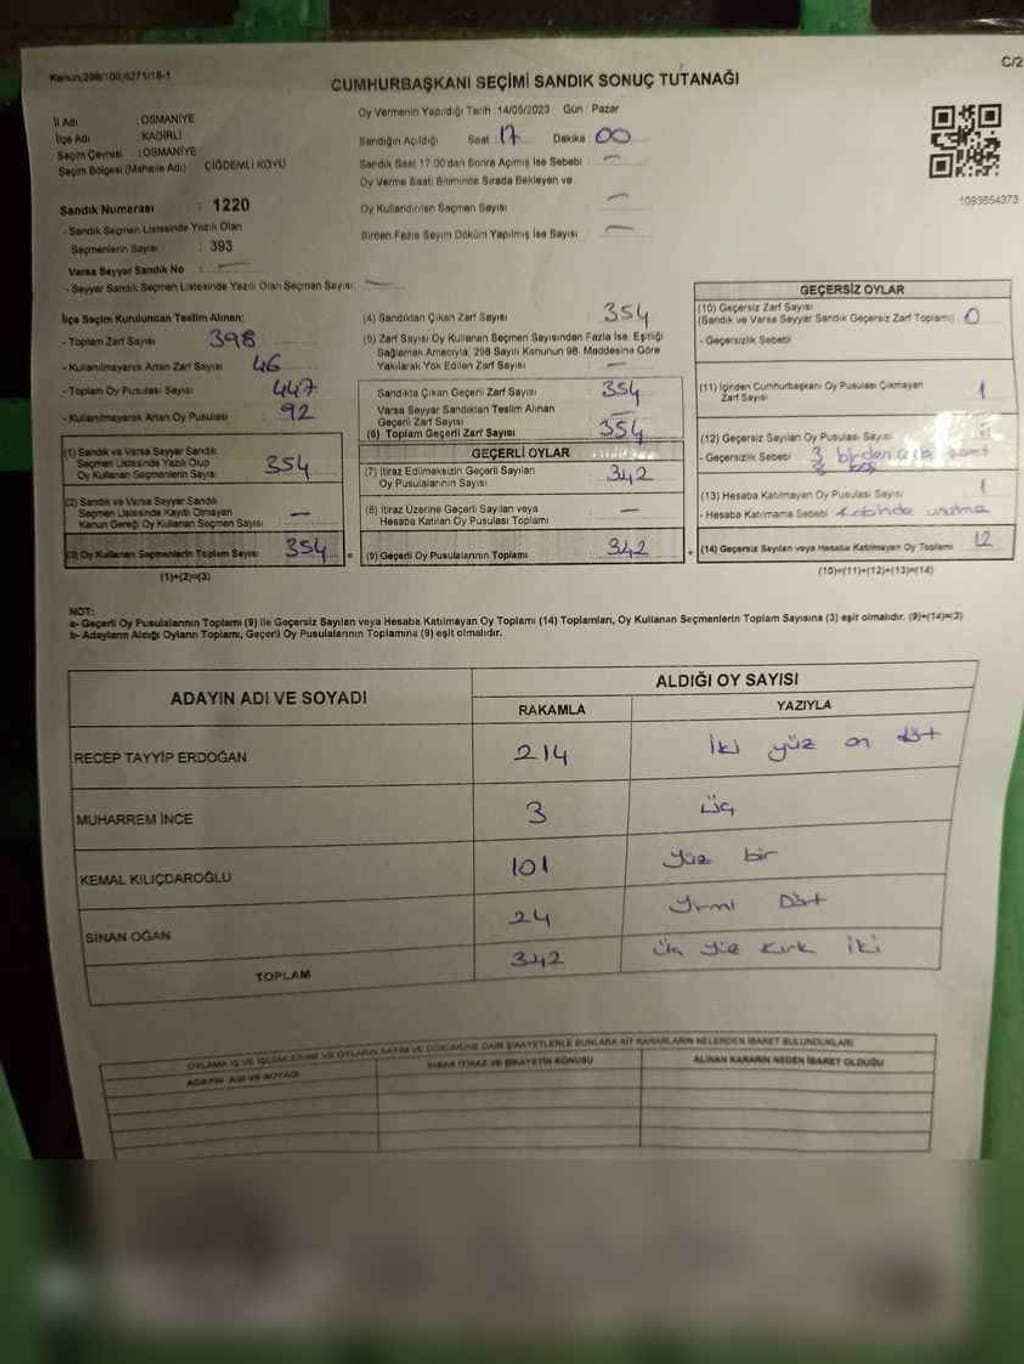 Kanun:298/109,6271/18-1
C/2
CUMHURBAŞKANI SEÇİMİ SANDIK SONUÇ TUTANAĞI
İl Adı : OSMANİYE
İlçe Adı : KADİRLİ
Seçim Çevresi : OSMANİYE
Seçim Bölgesi (Mahalle Adı) ÇİĞDEMLİ KÖYÜ
Sandık Numarası : 1220
- Sandık Seçmen Listesinde Yazılı Olan
Seçmenlerin Sayısı : 393
Varsa Seyyar Sandık No : —
- Seyyar Sandık Seçmen Listesinde Yazılı Olan Seçmen Sayısı: —
Oy Vermenin Yapıldığı Tarih :14/05/2023 Gün : Pazar
Sandığın Açıldığı Saat : 17 Dakika : 00
Sandık Saat 17:00'dan Sonra Açılmış İse Sebebi : —
Oy Verme Saati Bitiminde Sırada Bekleyen ve
Oy Kullandırılan Seçmen Sayısı : —
Birden Fazla Sayım Döküm Yapılmış İse Sayısı : —
1093654373
İlçe Seçim Kurulundan Teslim Alınan:
- Toplam Zarf Sayısı 398
- Kullanılmayarak Artan Zarf Sayısı 46
- Toplam Oy Pusulası Sayısı 447
- Kullanılmayarak Artan Oy Pusulası 92
(1) Sandık ve Varsa Seyyar Sandık
Seçmen Listesinde Yazılı Olup
Oy Kullanan Seçmenlerin Sayısı 354
(2) Sandık ve Varsa Seyyar Sandık
Seçmen Listesinde Kayıtlı Olmayan
Kanun Gereği Oy Kullanan Seçmen Sayısı —
(3) Oy Kullanan Seçmenlerin Toplam Sayısı 354 =
(1)+(2)=(3)
(4) Sandıktan Çıkan Zarf Sayısı 354
(5) Zarf Sayısı Oy Kullanan Seçmen Sayısından Fazla İse, Eşitliği
Sağlamak Amacıyla; 298 Sayılı Kanunun 98. Maddesine Göre
Yakılarak Yok Edilen Zarf Sayısı : —
Sandıkta Çıkan Geçerli Zarf Sayısı 354
Varsa Seyyar Sandıktan Teslim Alınan
Geçerli Zarf Sayısı —
(6) Toplam Geçerli Zarf Sayısı 354
GEÇERLİ OYLAR
(7) İtiraz Edilmeksizin Geçerli Sayılan
Oy Pusulalarının Sayısı 342
(8) İtiraz Üzerine Geçerli Sayılan veya
Hesaba Katılan Oy Pusulası Toplamı —
(9) Geçerli Oy Pusulalarının Toplamı 342 +
GEÇERSİZ OYLAR
(10) Geçersiz Zarf Sayısı
(Sandık ve Varsa Seyyar Sandık Geçersiz Zarf Toplamı) 0
- Geçersizlik Sebebi
(11) İçinden Cumhurbaşkanı Oy Pusulası Çıkmayan
Zarf Sayısı 1
(12) Geçersiz Sayılan Oy Pusulası Sayısı
- Geçersizlik Sebebi 3 birden
boş
(13) Hesaba Katılmayan Oy Pusulası Sayısı 1
- Hesaba Katılmama Sebebi : Kabinde unutma
(14) Geçersiz Sayılan veya Hesaba Katılmayan Oy Toplamı 12
(10)+(11)+(12)+(13)=(14)
NOT:
a- Geçerli Oy Pusulalarının Toplamı (9) ile Geçersiz Sayılan veya Hesaba Katılmayan Oy Toplamı (14) Toplamları, Oy Kullanan Seçmenlerin Toplam Sayısına (3) eşit olmalıdır. (9)+(14)=(3)
b- Adayların Aldığı Oyların Toplamı, Geçerli Oy Pusulalarının Toplamına (9) eşit olmalıdır.
ADAYIN ADI VE SOYADI
ALDIĞI OY SAYISI
RAKAMLA YAZIYLA
RECEP TAYYİP ERDOĞAN 214 iki yüz on dört
MUHARREM İNCE 3 üç
KEMAL KILIÇDAROĞLU 101 yüz bir
SİNAN OĞAN 24 yirmi Dört
TOPLAM 342 üç yüz kırk iki
OYLAMA İŞ VE İŞLEMLERİNE VE OYLARIN SAYIM VE DÖKÜMÜNE DAİR ŞİKAYETLERLE BUNLARA AİT KARARLARIN NELERDEN İBARET BULUNDUKLARI
ADAYIN ADI VE SOYADI
İHBAR İTİRAZ VE ŞİKAYETİN KONUSU
ALINAN KARARIN NEDEN İBARET OLDUĞU